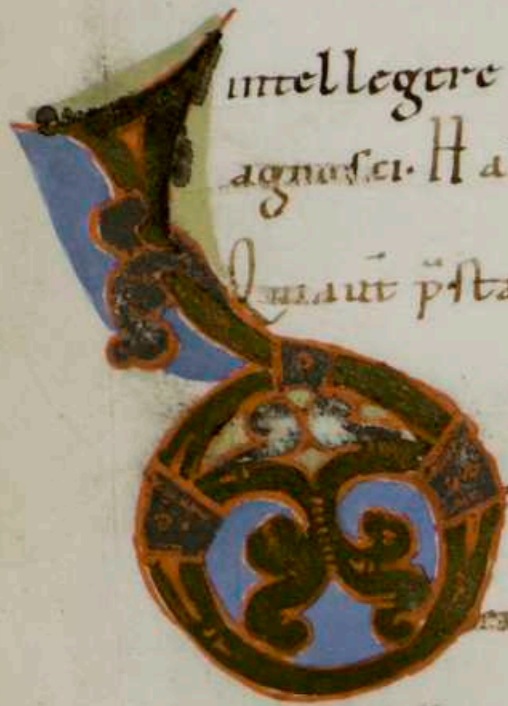 intellegere
agnosci. Ha
Quiaut p̄sta